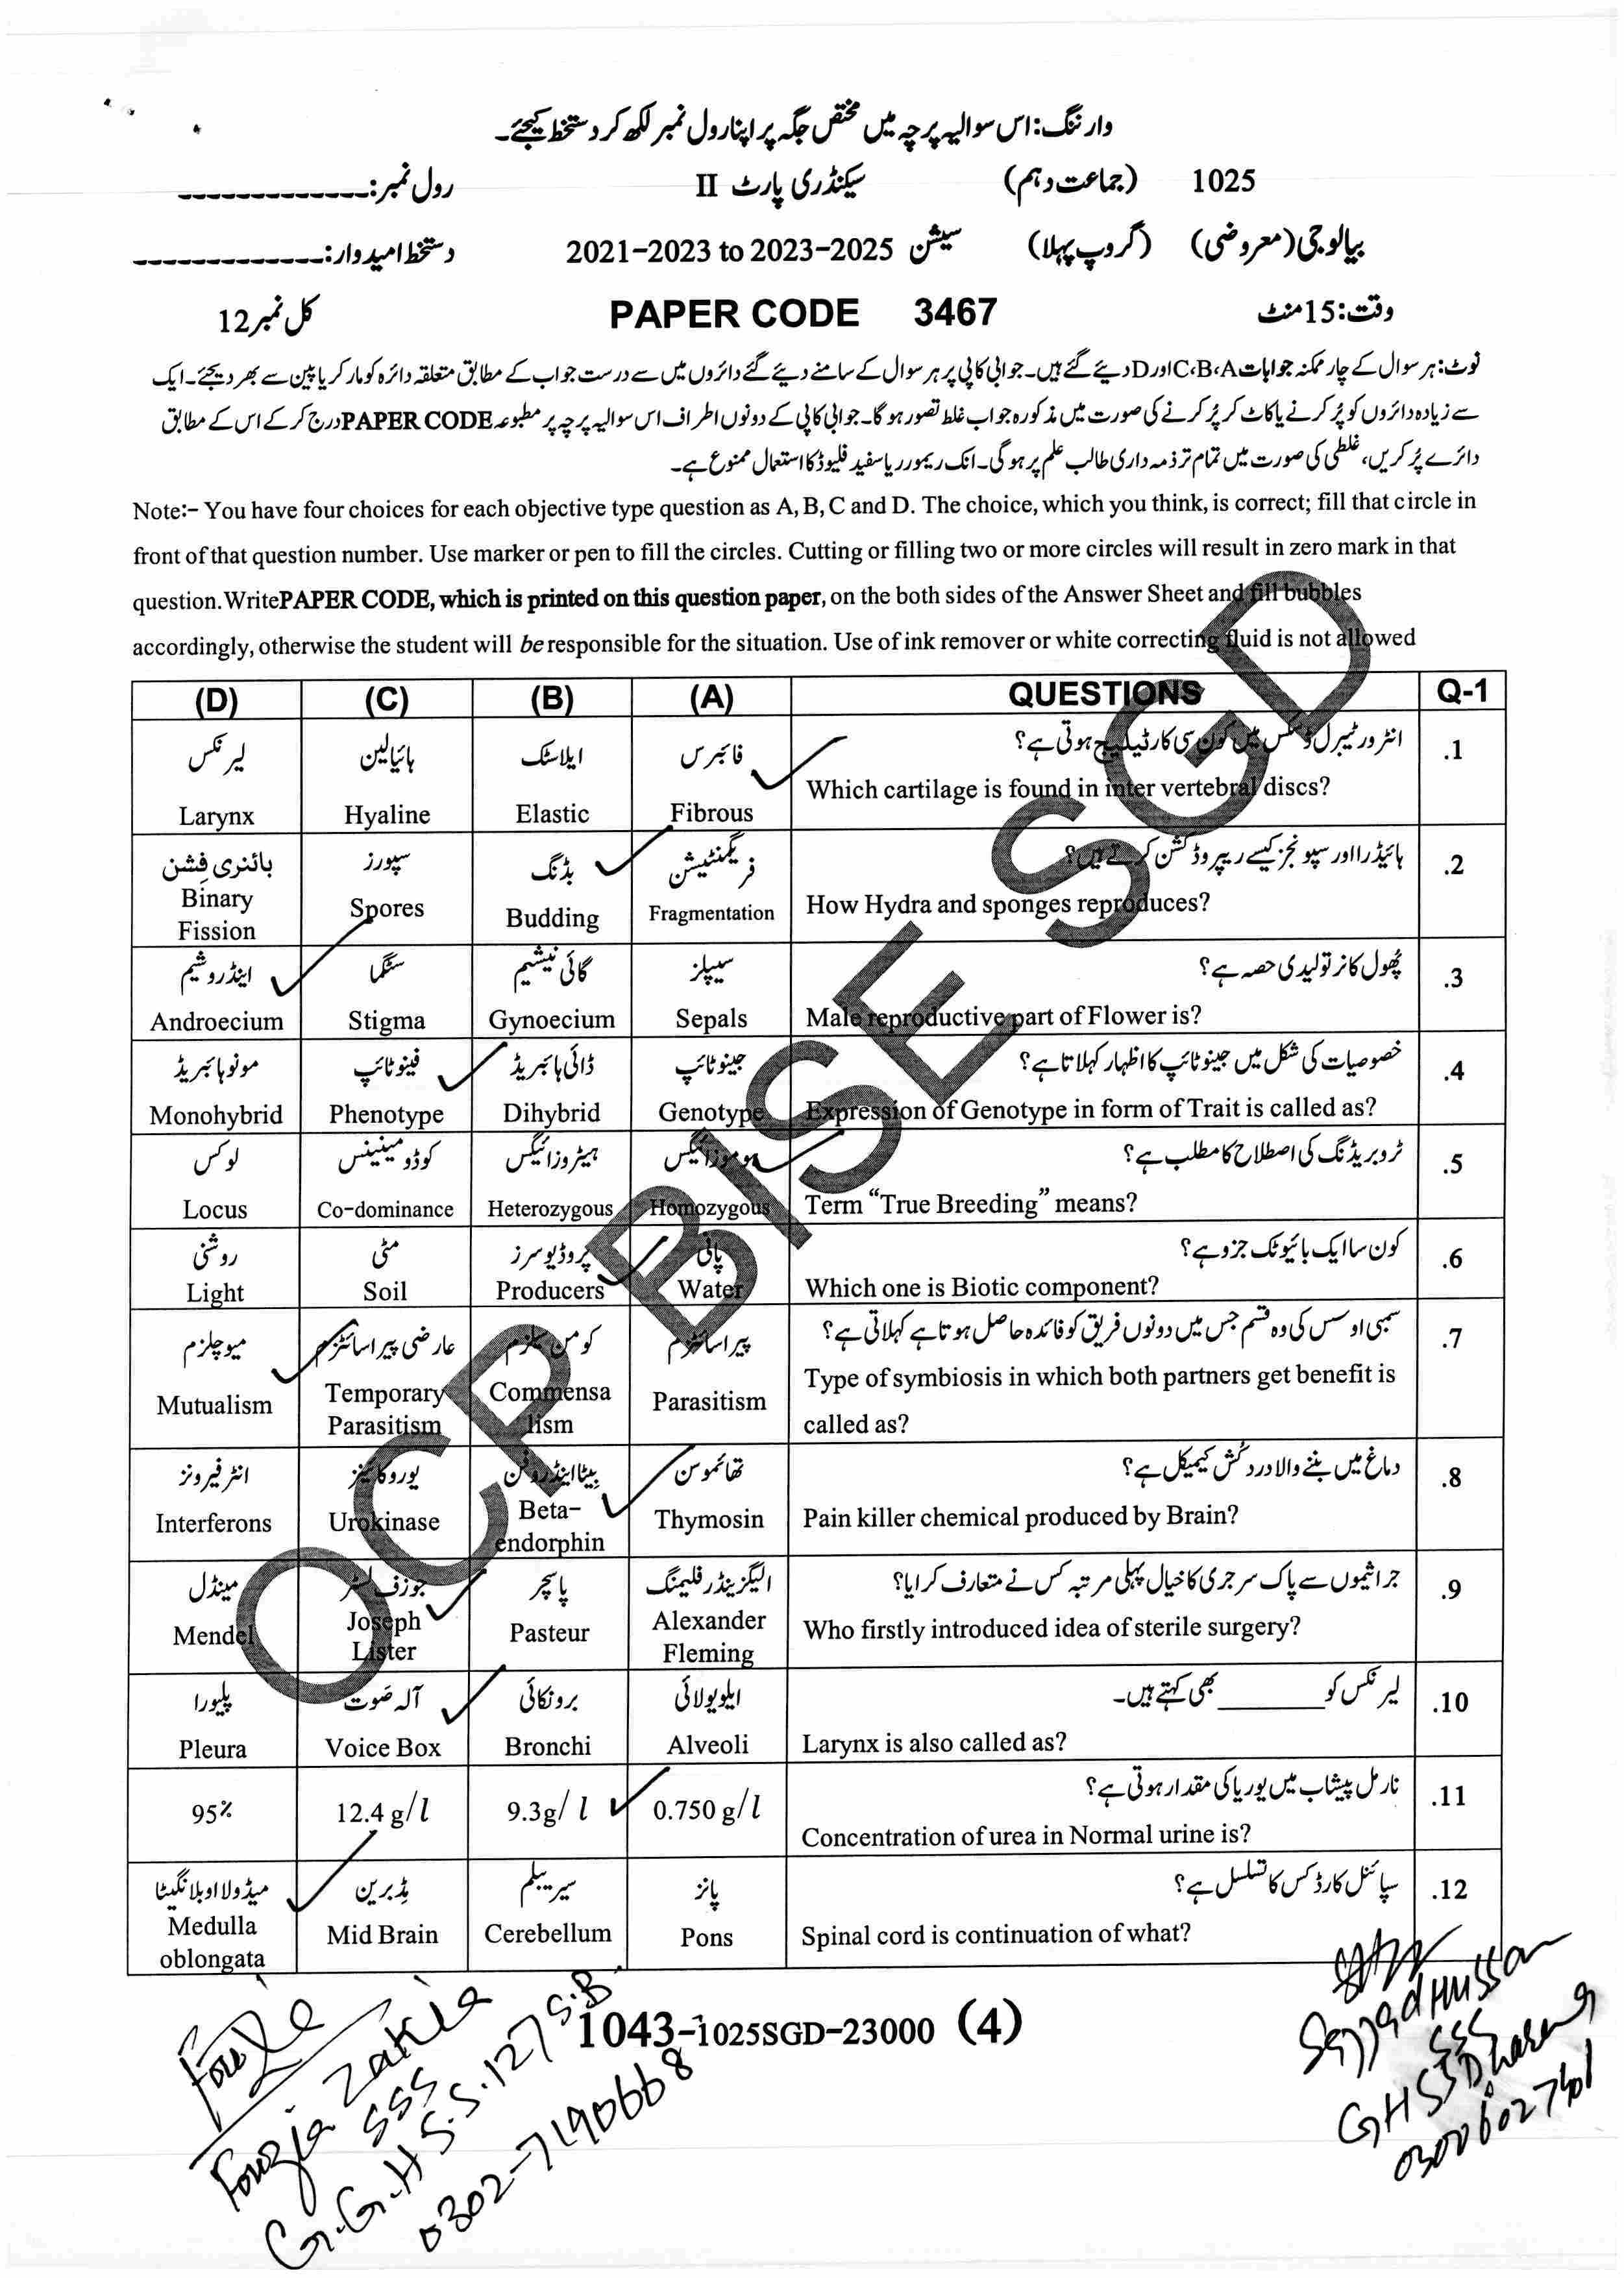 وارننگ: اس سوالیہ پرچہ میں مختص جگہ پر اپنا رول نمبر لکھ کر دستخط کیجئے۔
1025 (جماعت دہم) سیکنڈری پارٹ II رول نمبر:--------------
بیالوجی (معروضی) (گروپ پہلا) سیشن 2021-2023 to 2023-2025 دستخط امیدوار:--------------
وقت: 15 منٹ PAPER CODE 3467 کل نمبر 12
نوٹ: ہر سوال کے چار ممکنہ جوابات C،B،A اور D دیئے گئے ہیں۔ جوابی کاپی پر ہر سوال کے سامنے دیئے گئے دائروں میں سے درست جواب کے مطابق متعلقہ دائرہ کو مارکر یا پین سے بھر دیجئے۔ ایک
سے زیادہ دائروں کو پُر کرنے یا کاٹ کر پُر کرنے کی صورت میں مذکورہ جواب غلط تصور ہو گا۔ جوابی کاپی کے دونوں اطراف اس سوالیہ پرچہ پر مطبوعہ PAPER CODE درج کر کے اس کے مطابق
دائرے پُر کریں، غلطی کی صورت میں تمام تر ذمہ داری طالب علم پر ہو گی۔ انک ریمور یا سفید فلیوڈ کا استعمال ممنوع ہے۔
Note:- You have four choices for each objective type question as A, B, C and D. The choice, which you think, is correct; fill that circle in
front of that question number. Use marker or pen to fill the circles. Cutting or filling two or more circles will result in zero mark in that
question. Write PAPER CODE, which is printed on this question paper, on the both sides of the Answer Sheet and fill bubbles
accordingly, otherwise the student will be responsible for the situation. Use of ink remover or white correcting fluid is not allowed
(D) (C) (B) (A) QUESTIONS Q-1
.1 انٹرورٹیبرل ڈسکس میں کون سی کارٹیلیج ہوتی ہے؟ فائبرس ایلاسٹک ہائیالین لیرنکس
Which cartilage is found in inter vertebral discs? Fibrous Elastic Hyaline Larynx
.2 ہائیڈرا اور سپونجز کیسے ریپروڈکشن کرتے ہیں؟ فریگمنٹیشن بڈنگ سپورز بائنری فشن
How Hydra and sponges reproduces? Fragmentation Budding Spores Binary Fission
.3 پُھول کا نر تولیدی حصہ ہے؟ سیپلز گائی نیشیم سٹگما اینڈروشیم
Male reproductive part of Flower is? Sepals Gynoecium Stigma Androecium
.4 خصوصیات کی شکل میں جینوٹائپ کا اظہار کہلاتا ہے؟ جینوٹائپ ڈائی ہائبرڈ فینوٹائپ مونوہائبریڈ
Expression of Genotype in form of Trait is called as? Genotype Dihybrid Phenotype Monohybrid
.5 ٹرو بریڈنگ کی اصطلاح کا مطلب ہے؟ ہوموزائیگس ہیٹروزائیگس کوڈومینینس لوکس
Term “True Breeding” means? Homozygous Heterozygous Co-dominance Locus
.6 کون سا ایک بائیوٹک جزو ہے؟ پانی پروڈیوسرز مٹی روشنی
Which one is Biotic component? Water Producers Soil Light
.7 سمبی اوسس کی وہ قسم جس میں دونوں فریق کو فائدہ حاصل ہوتا ہے کہلاتی ہے؟ پیراسائٹزم کومن سیلزم عارضی پیراسائٹزم میوچلزم
Type of symbiosis in which both partners get benefit is called as? Parasitism Commensalism Temporary Parasitism Mutualism
.8 دماغ میں بننے والا درد کُش کیمیکل ہے؟ تھائموسن بیٹا اینڈروفن یوروکائینز انٹرفیرونز
Pain killer chemical produced by Brain? Thymosin Beta-endorphin Urokinase Interferons
.9 جراثیموں سے پاک سرجری کا خیال پہلی مرتبہ کس نے متعارف کرایا؟ الیگزینڈر فلیمنگ پاسچر جوزف لسٹر مینڈل
Who firstly introduced idea of sterile surgery? Alexander Fleming Pasteur Joseph Lister Mendel
.10 لیرنکس کو ________ بھی کہتے ہیں۔ ایلویولائی برونکائی آلہ صَوت پلیورا
Larynx is also called as? Alveoli Bronchi Voice Box Pleura
.11 نارمل پیشاب میں یوریا کی مقدار ہوتی ہے؟
Concentration of urea in Normal urine is? 0.750 g/l 9.3g/ l 12.4 g/l 95%
.12 سپائنل کارڈ کس کا تسلسل ہے؟ پانز سیریبیلم مڈبرین میڈولا اوبلانگیٹا
Spinal cord is continuation of what? Pons Cerebellum Mid Brain Medulla oblongata
OCP BISE SGD
1043-1025SGD-23000 (4)
Fouzia Zakia
SSS
G.G.H.S.S.127 S.B
0302-7190668
Sajjad Hussan
SSS
GHSS Dharema